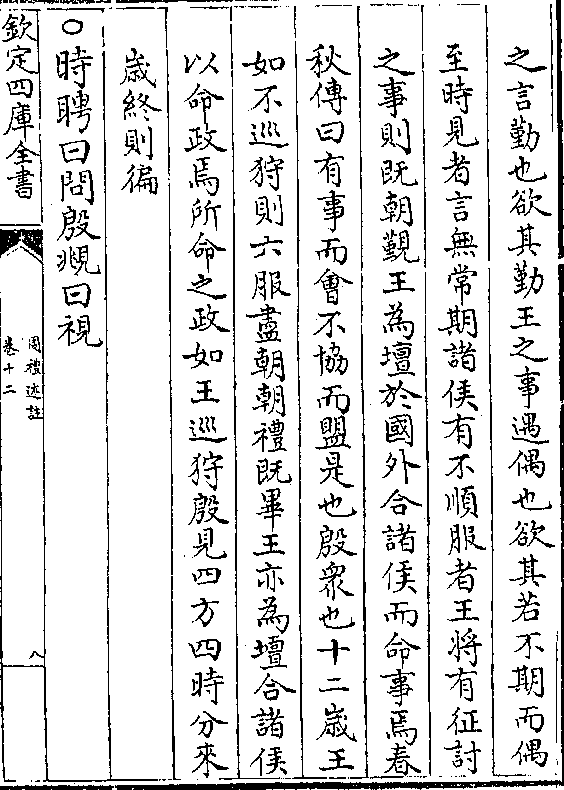 之言勤也欲其勤王之事遇偶也欲其若不期而偶
至時見者言無常期諸侯有不順服者王將有征討
之事則既朝覲王為壇於國外合諸侯而命事焉春
秋傳曰有事而會不協而盟是也殷衆也十二歲王
如不巡狩則六服盡朝朝禮既畢王亦為壇合諸侯
以命政焉所命之政如王巡狩殷見四方四時分來
歲終則徧
○時聘曰問殷覜曰視
欽定四庫全書
周禮述註
卷十二
八